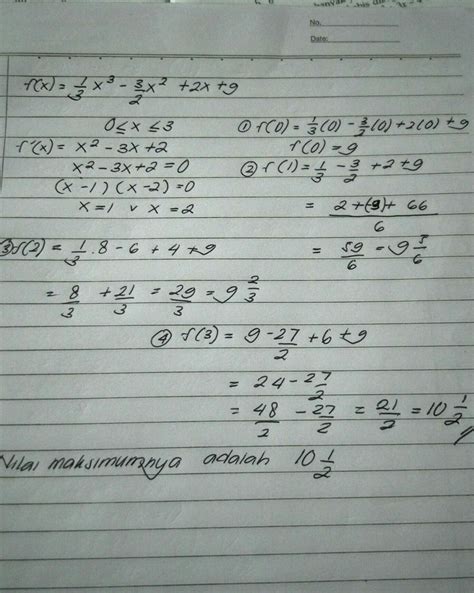 No.
Date:
f(x) = 1/3 x³ - 3/2 x² + 2x + 9
0 ≤ x ≤ 3
f'(x) = x² - 3x + 2
x² - 3x + 2 = 0
(x - 1) (x - 2) = 0
x = 1 v x = 2
① f(0) = 1/3 (0) - 3/2 (0) + 2(0) + 9
f(0) = 9
② f(1) = 1/3 - 3/2 + 2 + 9
= 2 + (-9) + 66 / 6
= 59/6 = 9 5/6
③ f(2) = 1/3 . 8 - 6 + 4 + 9
= 8/3 + 21/3 = 29/3 = 9 2/3
④ f(3) = 9 - 27/2 + 6 + 9
= 24 - 27/2
= 48/2 - 27/2 = 21/2 = 10 1/2
Nilai maksimumnya adalah 10 1/2